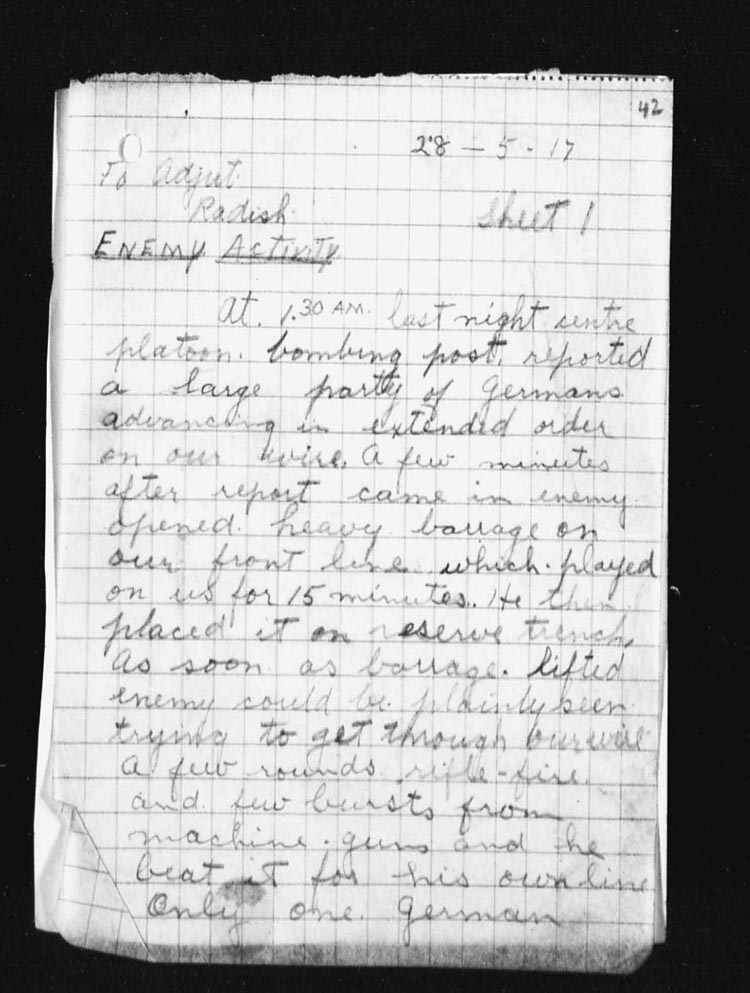 42
28 - 5 - 17
To Adjut.
Radish.
Sheet 1
ENEMY ACTIVITY
At. 1.30 AM. last night centre
platoon. bombing post, reported
a large party of Germans
advancing in extended order
on our wire. A few minutes
after report came in enemy
opened heavy barrage on
our front line which played
on us for 15 minutes. He then
placed it on reserve trench,
As soon as barrage lifted
enemy could be plainly seen
trying to get through our wire
A few rounds rifle-fire
and few bursts from
machine guns and he
beat it for his own line
Only one German